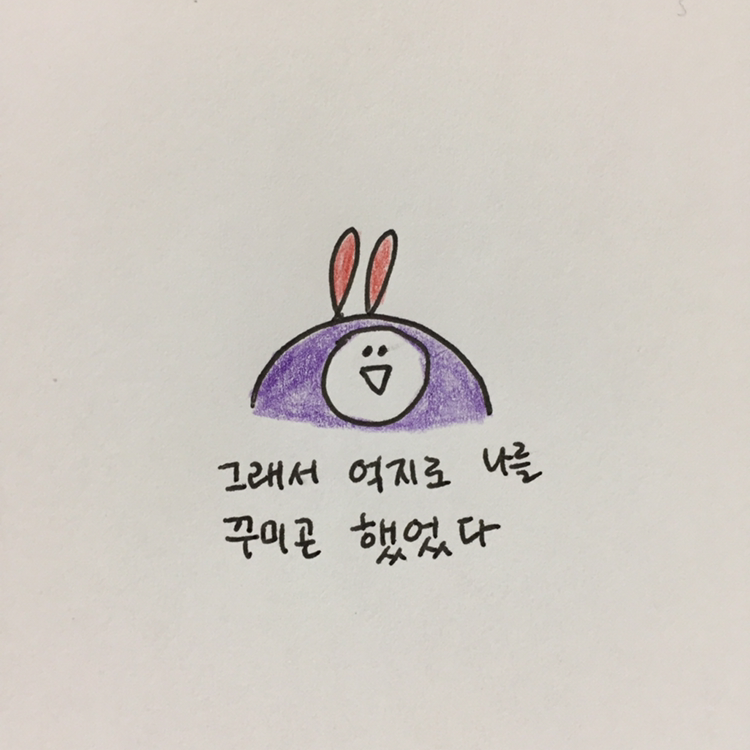 그래서 억지로 나를
꾸미곤 했었다